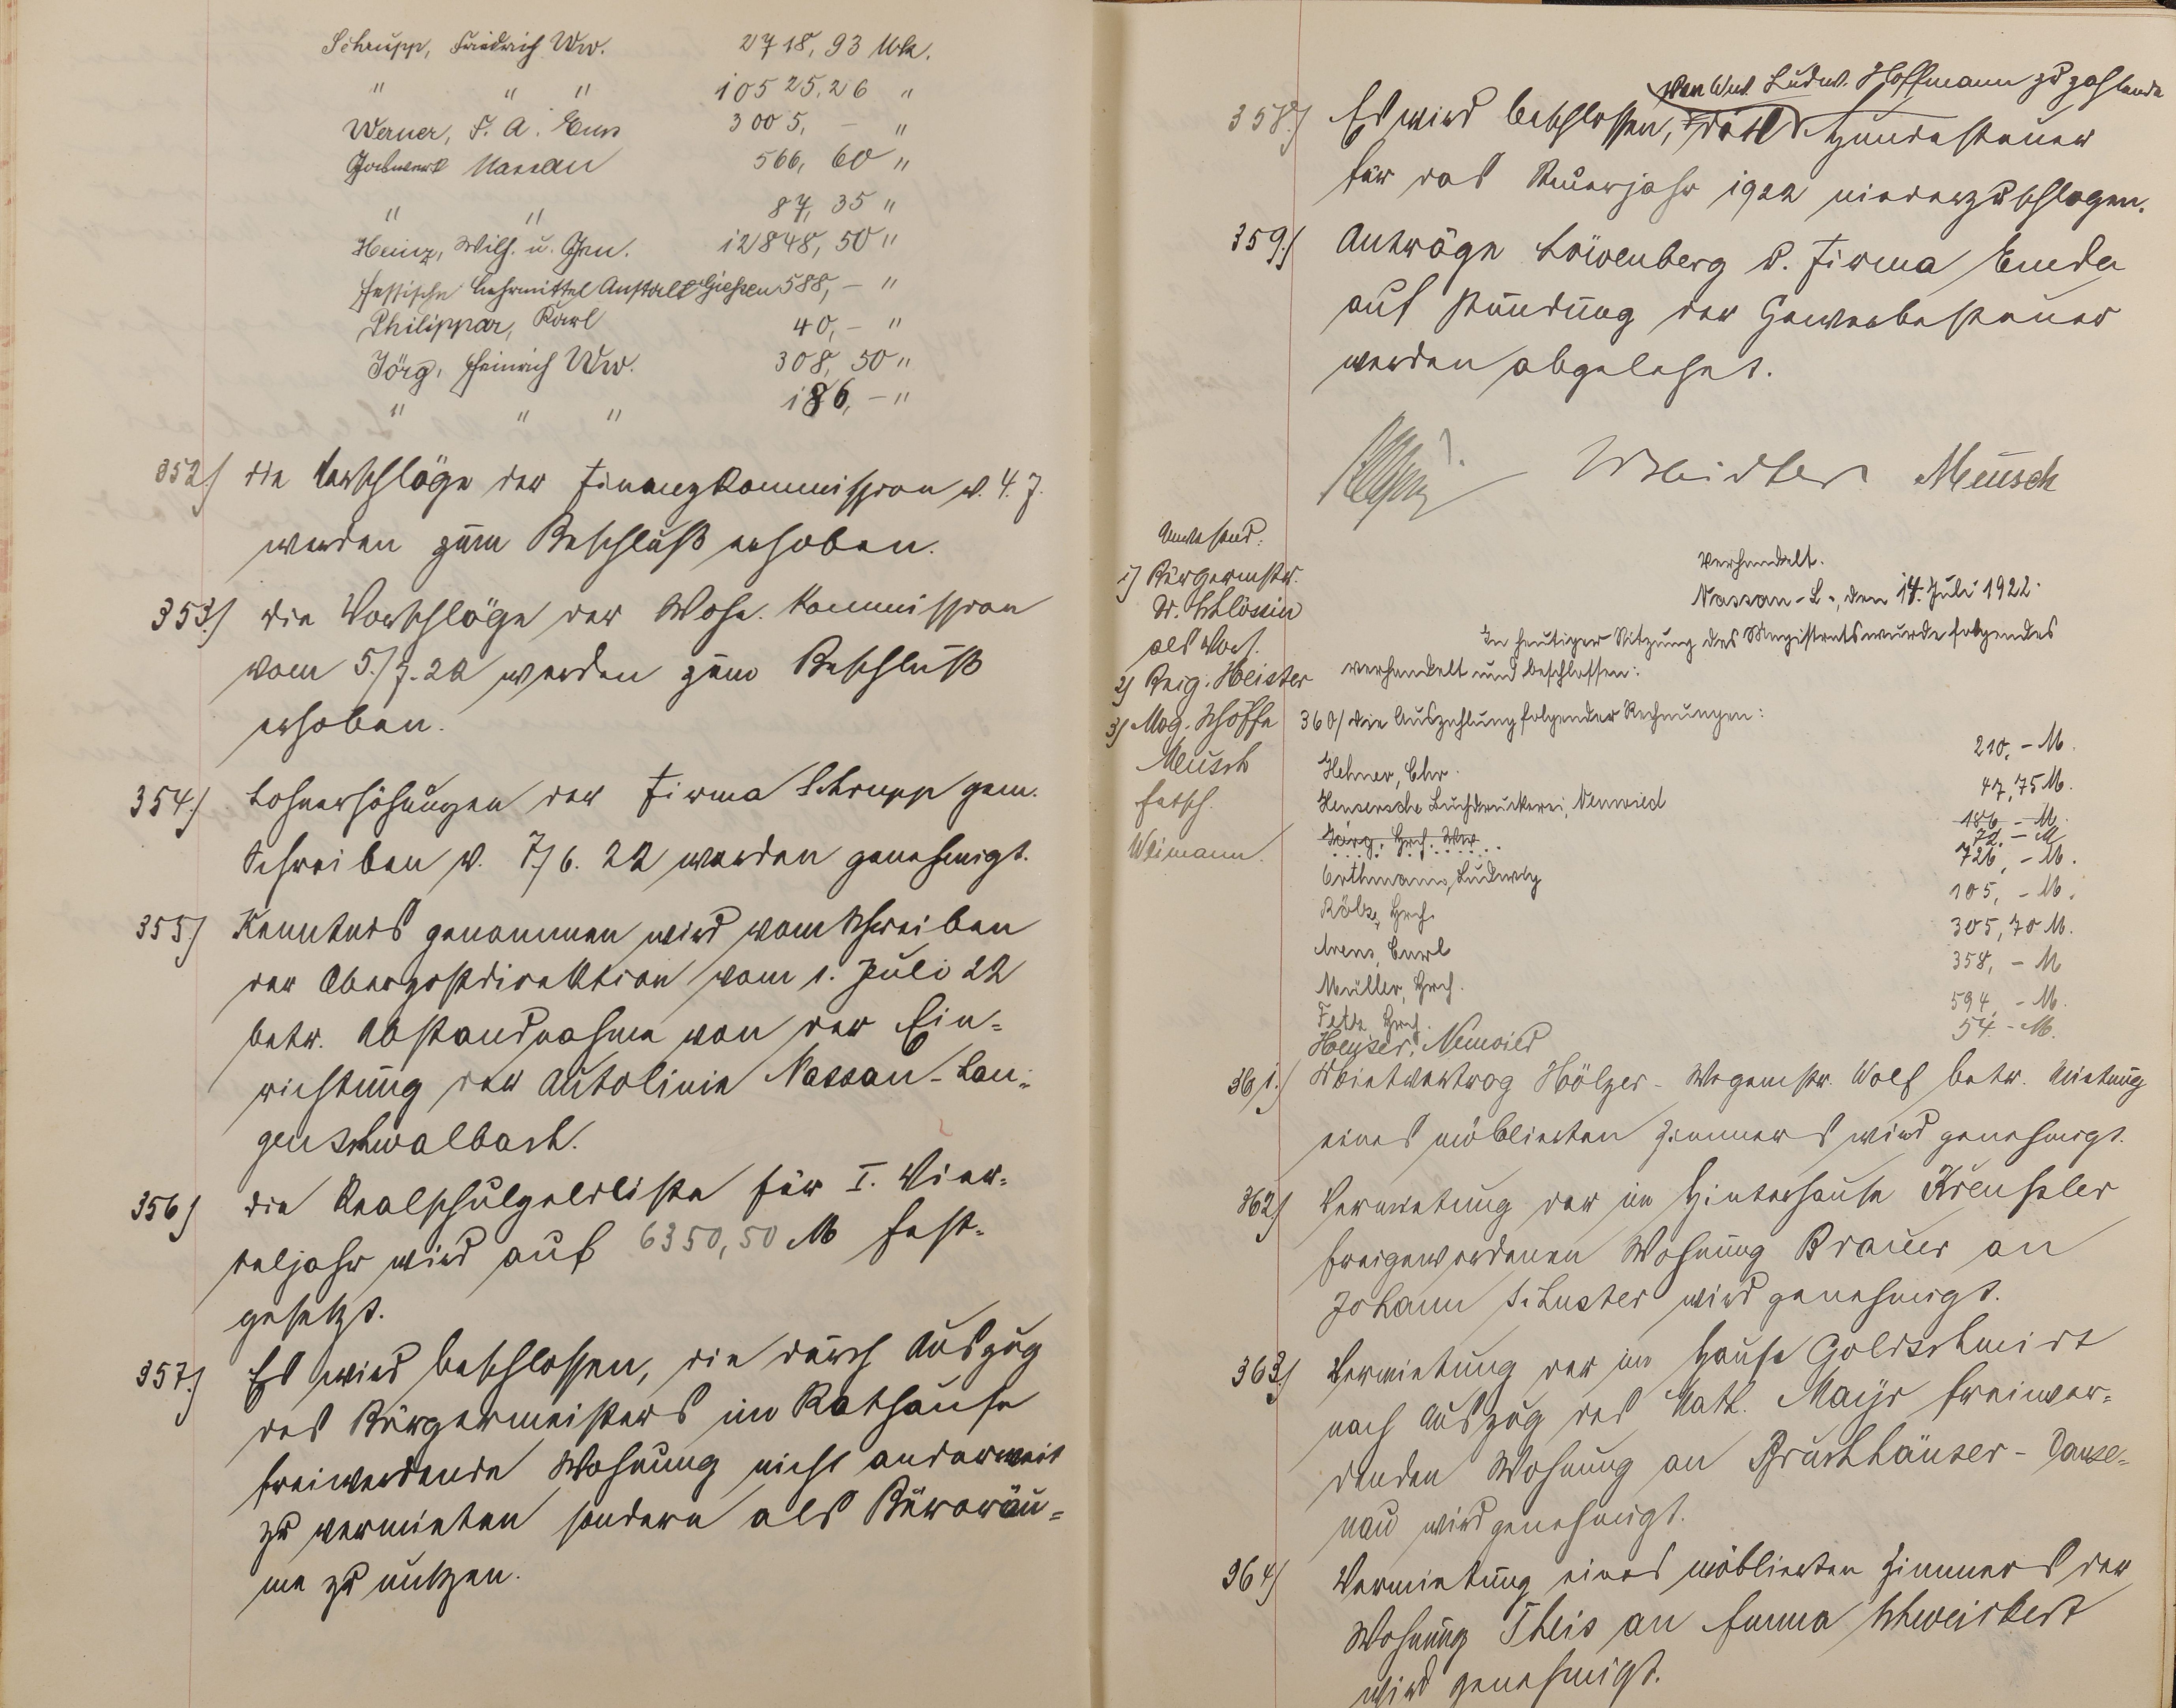 Schrupp, Friedrich Ww. 2718,93 Mk.
" " " 10525,26 "
Werner, F. A. Ems 3005,- "
Gaswerk Nassau 566,60 "
" " 87,35 "
Heinz, Wilh. u. Gen. 12848,50 "
Hessische Lehrmittel Anstalt Giehsen 588,- "
Philippar, Karl 40,- "
Jörg, Heinrich Ww. 308,50 "
" " " 186,- "
352) Die Vorschläge der Finanzkommission v. 4.7.
werden zum Beschluß erhoben.
353.) Die Vorschläge der Wohn. Kommission
vom 5./7.22 werden zum Beschluß
erhoben.
354.) Lohnerhöhungen der Firma Schrupp gem.
Schreiben v. 7./6.22 werden genehmigt.
355.) Kenntnis genommen wird vom Schreiben
der Oberpostdirektion vom 1. Juli 22
betr. Abstandnahme von der Ein-
richtung der Autolinie Nassau-Lan-
genschwalbach.
356) Die Realschulgeldliste für I. Vier-
teljahr wird auf 6350,50 M fest-
gesetzt.
357.) Es wird beschlossen, die durch Auszug
des Bürgermeisters im Rathause
freiwerdende Wohnung nicht anderweit
zu vermieten sondern als Büroräu-
me zu nutzen.
von Ww. Ludw. Hoffmann zu zahlende
358.) Es wird beschlossen, die Hundesteuer
für das Steuerjahr 1922 niederzuschlagen.
359.) Anträge Löwenberg u. Firma Emda
auf Stundung der Gewerbesteuer
werden abgelehnt.
Meusch
Anwesend:
1) Bürgermstr.
Dr. Schlössin
als Vors.
2) Beig. Heister
3) Mag. Schöffe
Meusch
Fetsch.
Weimann.
Verhandelt.
Nassau-L., den 14. Juli 1922.
In heutiger Sitzung des Magistrats wurde folgendes
verhandelt und beschlossen:
360) Die Auszahlung folgender Rechnungen:
Hehner, Chr. 210,- M.
Heusersche Buchdruckerei, Neuwied 47,75 M.
Jörg, Hrch. Ww. 186,- M
72,- M
Orthmann, Ludwig 726,- M.
Rölz, Hrch. 105,- M.
Arens, Carl 305,70 M.
Müller, Hrch. 358,- M
Fetz, Hrch. 594,- M.
Heuser, Neuwied 54,- M.
361.) Mietvertrag Hölzer - Wegemstr. Wolf betr. Mietung
eines möblierten Zimmers wird genehmigt.
362) Vermietung der im Hinterhause Kreuseler
freigewordenen Wohnung Brauer an
Johann Schuster wird genehmigt.
363) Vermietung der im Hause Goldschmidt
nach Auszug des Kath. Mayr freiwer-
denden Wohnung an Bruchhäuser - Dause-
nau wird genehmigt.
364) Vermietung eines möblierten Zimmers der
Wohnung Theis an Emma Schweickert
wird genehmigt.